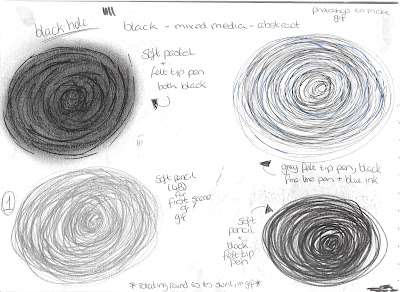 black hole
black - mixed media - abstract
photoshop to make
gif
soft pastel
+
felt tip pen
both black
grey felt tip pen, black
fine line pen + blue ink
1
soft pencil
(4B)
for
first scene
of
gif
soft
pencil
+
black
felt tip
pen
*rotating round so its swirling gif*